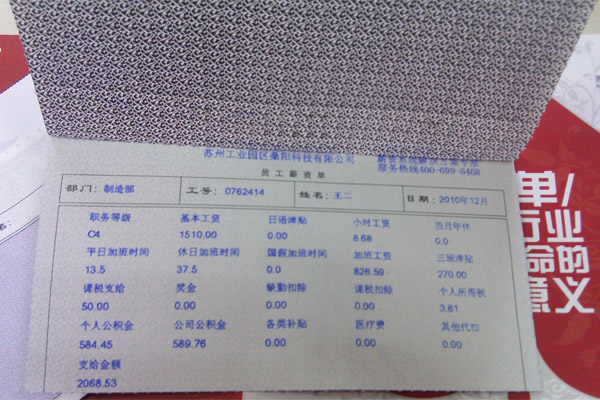 苏州工业园区桑阳科技有限公司
薪资系统解决方案专家
服务热线400-699-6468
员工薪资单
部门: 制造部 工号: 0762414 姓名: 王二 日期: 2010年12月
职务等级 基本工资 日语津贴 小时工资 当月年休
C4 1510.00 0.00 8.68 0.0
平日加班时间 休日加班时间 国假加班时间 加班工资 三班津贴
13.5 37.5 0.0 826.59 270.00
课税支给 奖金 缺勤扣除 课税扣除 个人所枣税
50.00 0.00 0.00 0.00 3.61
个人公积金 公司公积金 各类补贴 医疗费 其他代扣
584.45 589.76 0.00 0.00 0.00
支给金额
2068.53
单/
行业
命的
意义